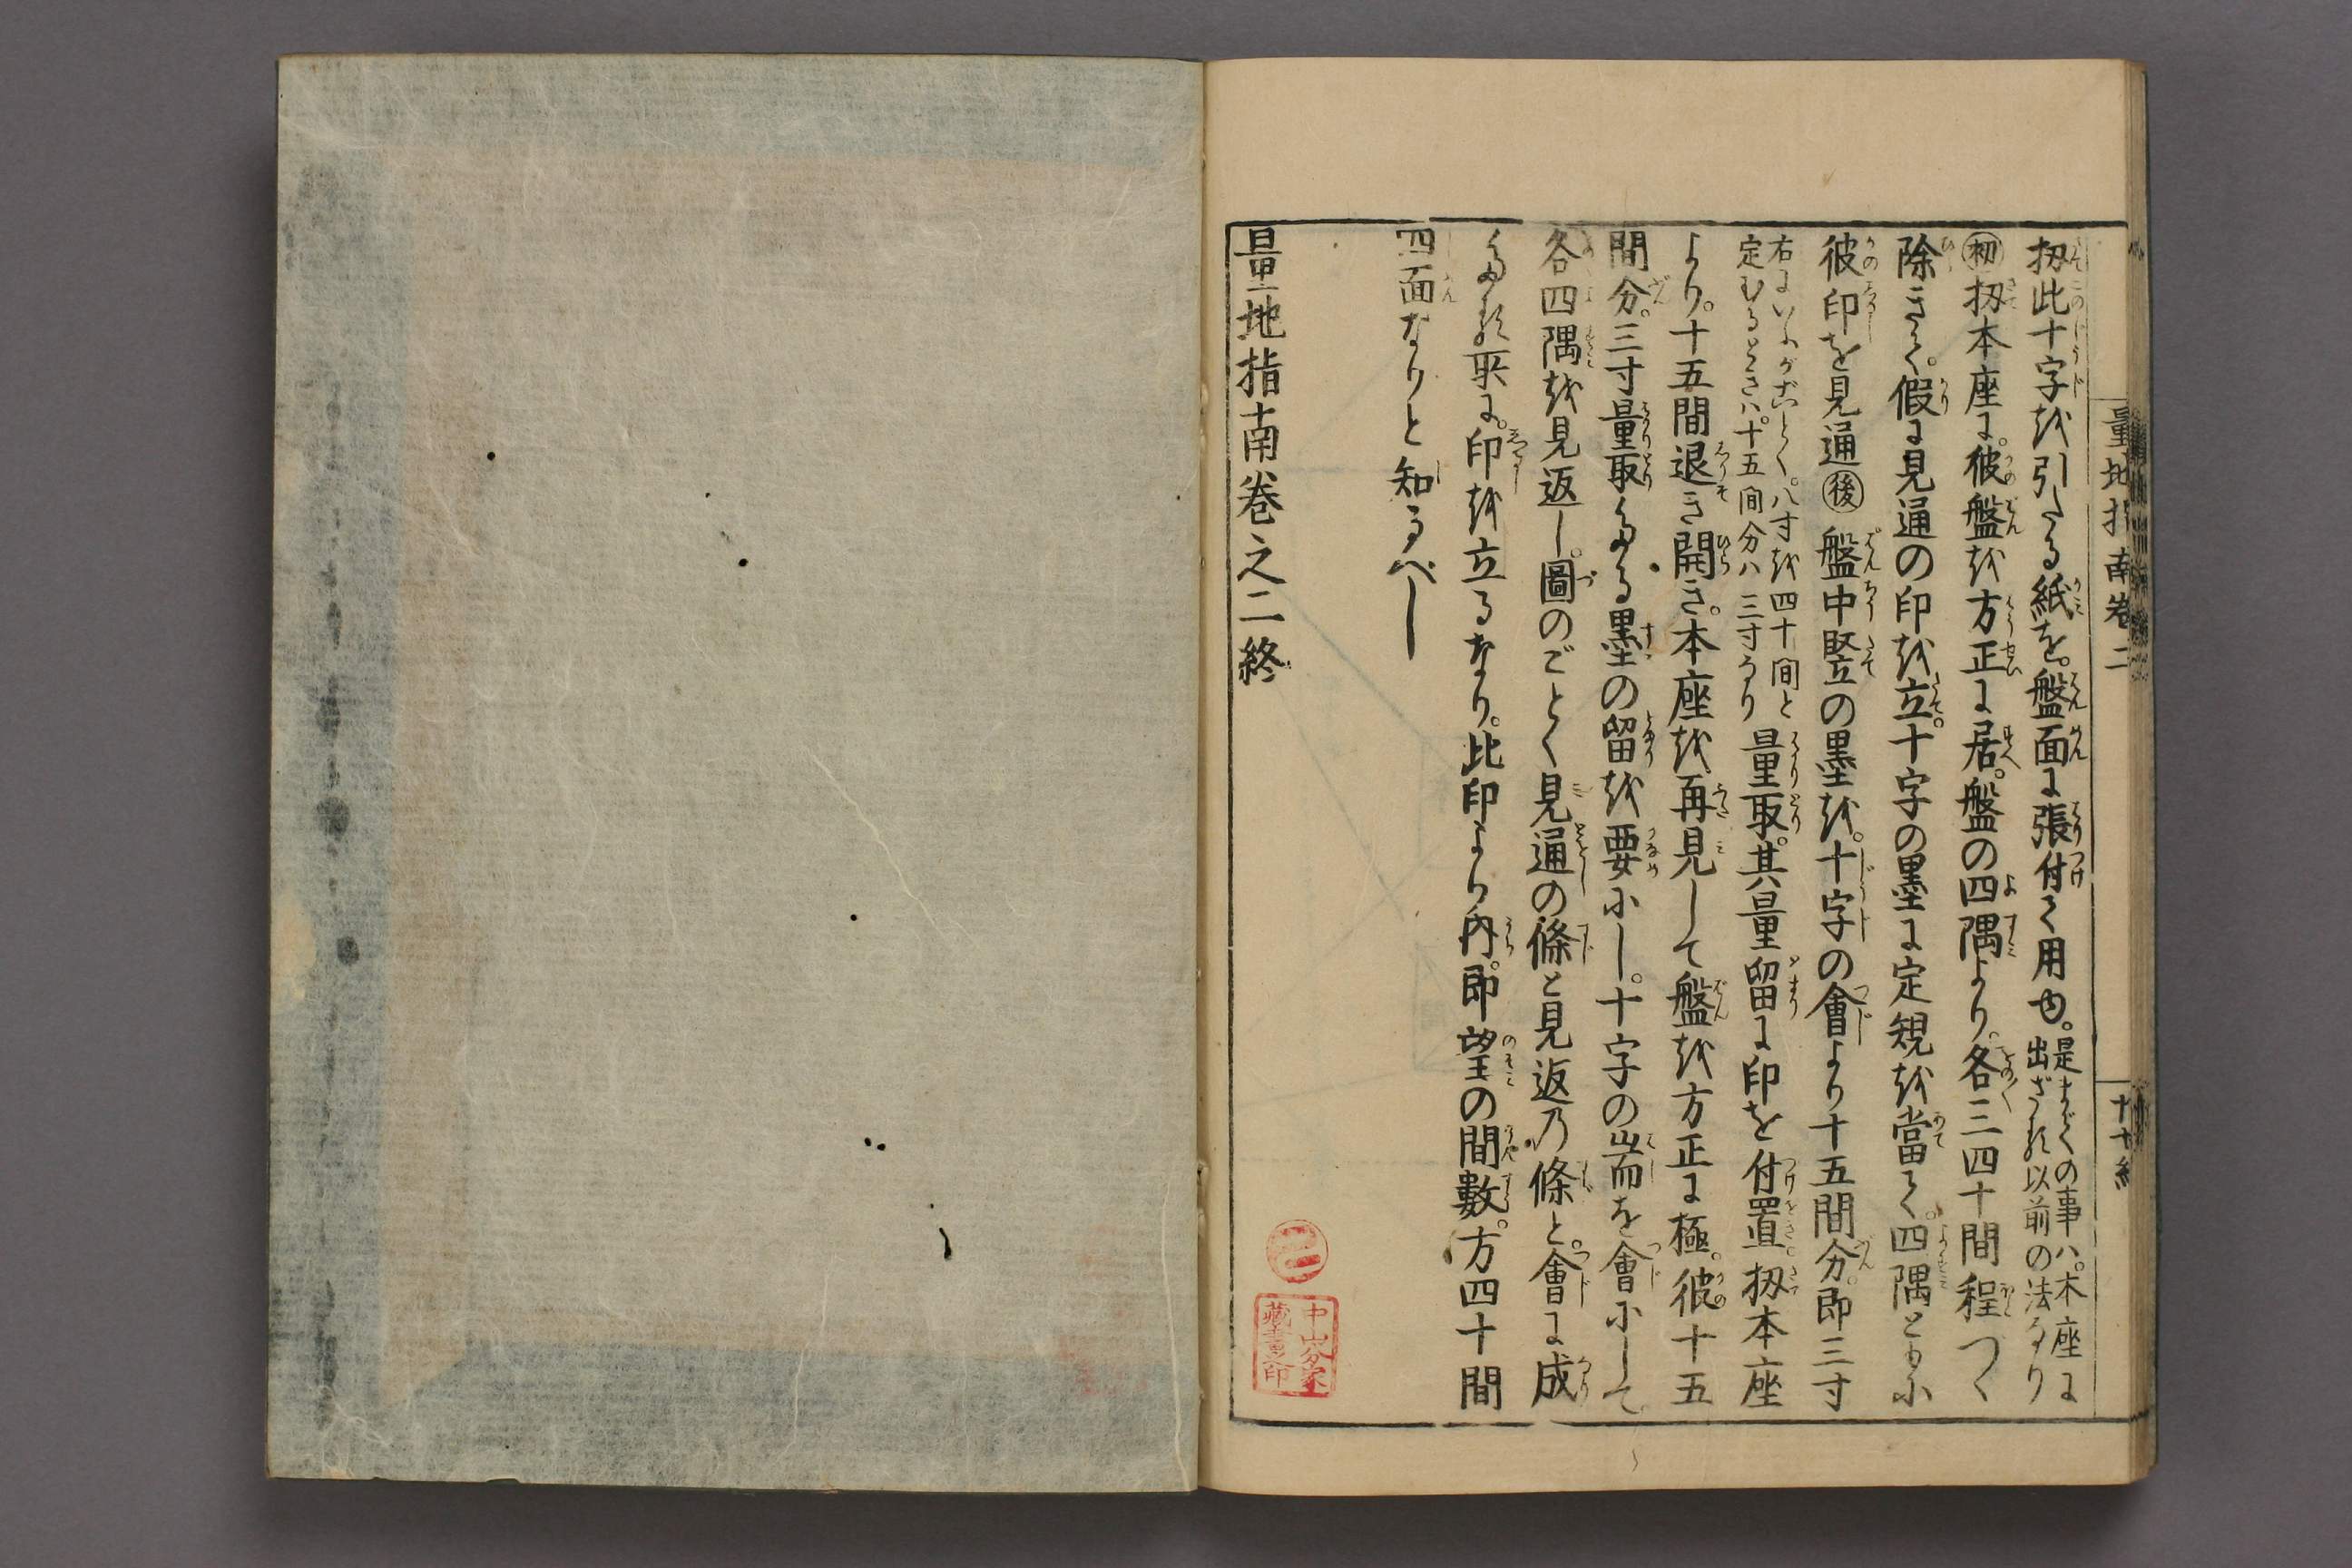 扨此十字を引たる紙を。盤面に張付て用ゆ。是までの事ハ。本座に出ざる以前の法なり
㊞初扨本座に。彼盤を方正に居。盤の四隅より。各三四十間程づゝ
除きて。假に見通の印を立。十字の墨に定規を當て。四隅ともに
彼印を見通後盤中竪の墨を。十字の會より十五間分。即三寸
右にいふがごとく。八寸を四十間と定むるときハ。十五間分ハ三寸なり量取。其量留に印を付置。扨本座
より。十五間退き開き。本座を再見して盤を方正に極。彼十五
間分。三寸量取たる墨の留を要にし。十字の耑を會にして。
各四隅を見返し。圖のごとく見通の條と見返乃條と。會に成
たる所に。印を立るなり。此印より内。即望の間數。方四十間
四面なりと知るべし
量地指南巻之二終
量地指南巻二
中山分家
藏書之印